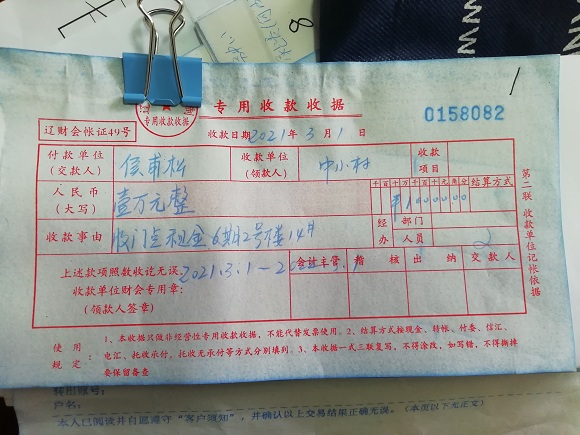 专用收款收据
0158082
辽财会帐证49号
专用收款收据
收款日期2021年3月1日
付款单位
(交款人)
收款单位
(领款人)
中小村
收款
项目
人民币
(大写)
壹万元整
千百十万千百十元角分
结算方式
¥1000000
收款事由
收门点租金6期2号楼14#
经办
部门
人员
上述款项照数收讫无误。
收款单位财会专用章:
(领款人签章)
2021.3.1—
会计主管
稽核
出纳
交款人
第二联 收款单位记帐依据
使用规定:
1、本收据只做非经营性专用收款收据,不能代替发票使用。2、结算方式按现金、转帐、付委、信汇、
电汇、托收承付,托收无承付等方式分别填列。3、本收据一式三联复写,不得涂改,如写错,不得撕掉
要保留备查
转出账号:
户名:
本人已阅读并自愿遵守“客户须知”,并确认以上交易结果正确无误。(本页以下无正文)